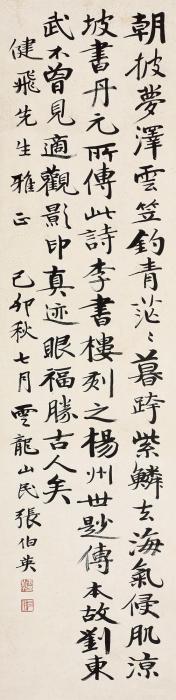 朝披夢澤雲笠釣青茫〻暮跨紫鱗去海氣侵肌涼
坡書丹元所傳此詩李書樓刻之楊州世尟傳本故劉東
武不曾見適觀影印真迹眼福勝古人矣
健飛先生雅正
己卯秋七月雲龍山民張伯英